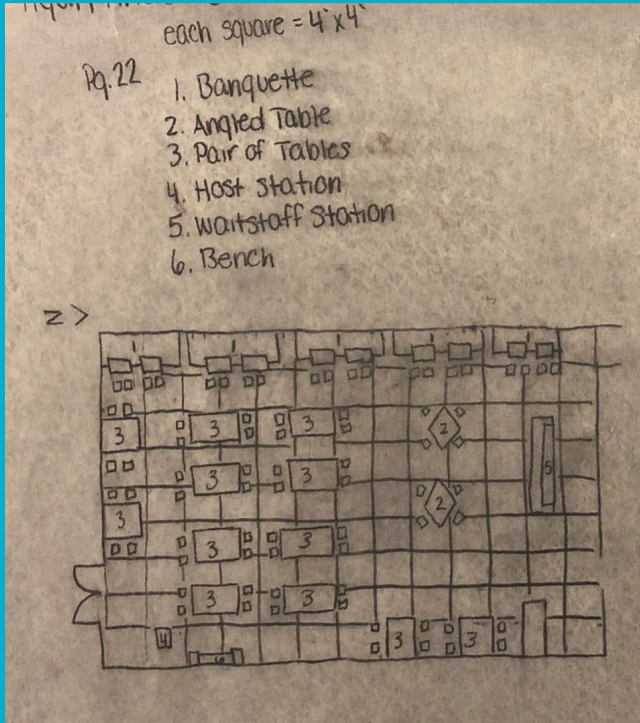 each square = 4'x4'
Pg.22
1. Banquette
2. Angled Table
3. Pair of Tables
4. Host Station
5. Waitstaff Station
6. Bench
Z >
1 1 1 1 1
3 3 3 2
3 3 2 5
3
3 3
3 3
4 6 3 3